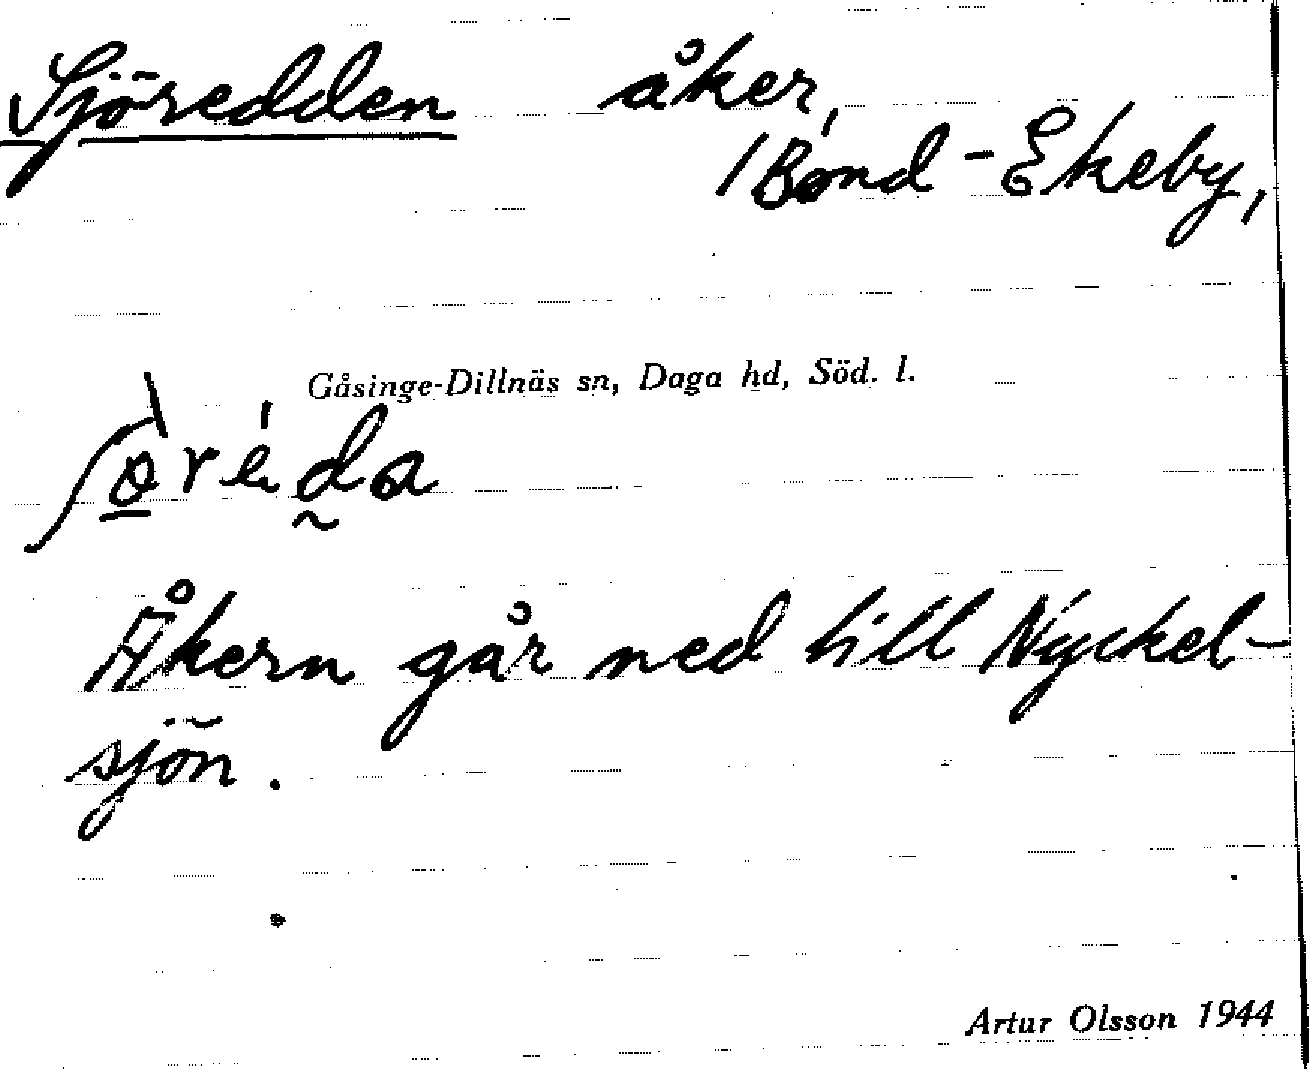 Sjöredden åker,
Bond-Ekeby,
Gåsinge-Dillnäs sn, Daga hd, Söd. l.
Åkern går ned till Nyckel-
sjön.
Artur Olsson 1944